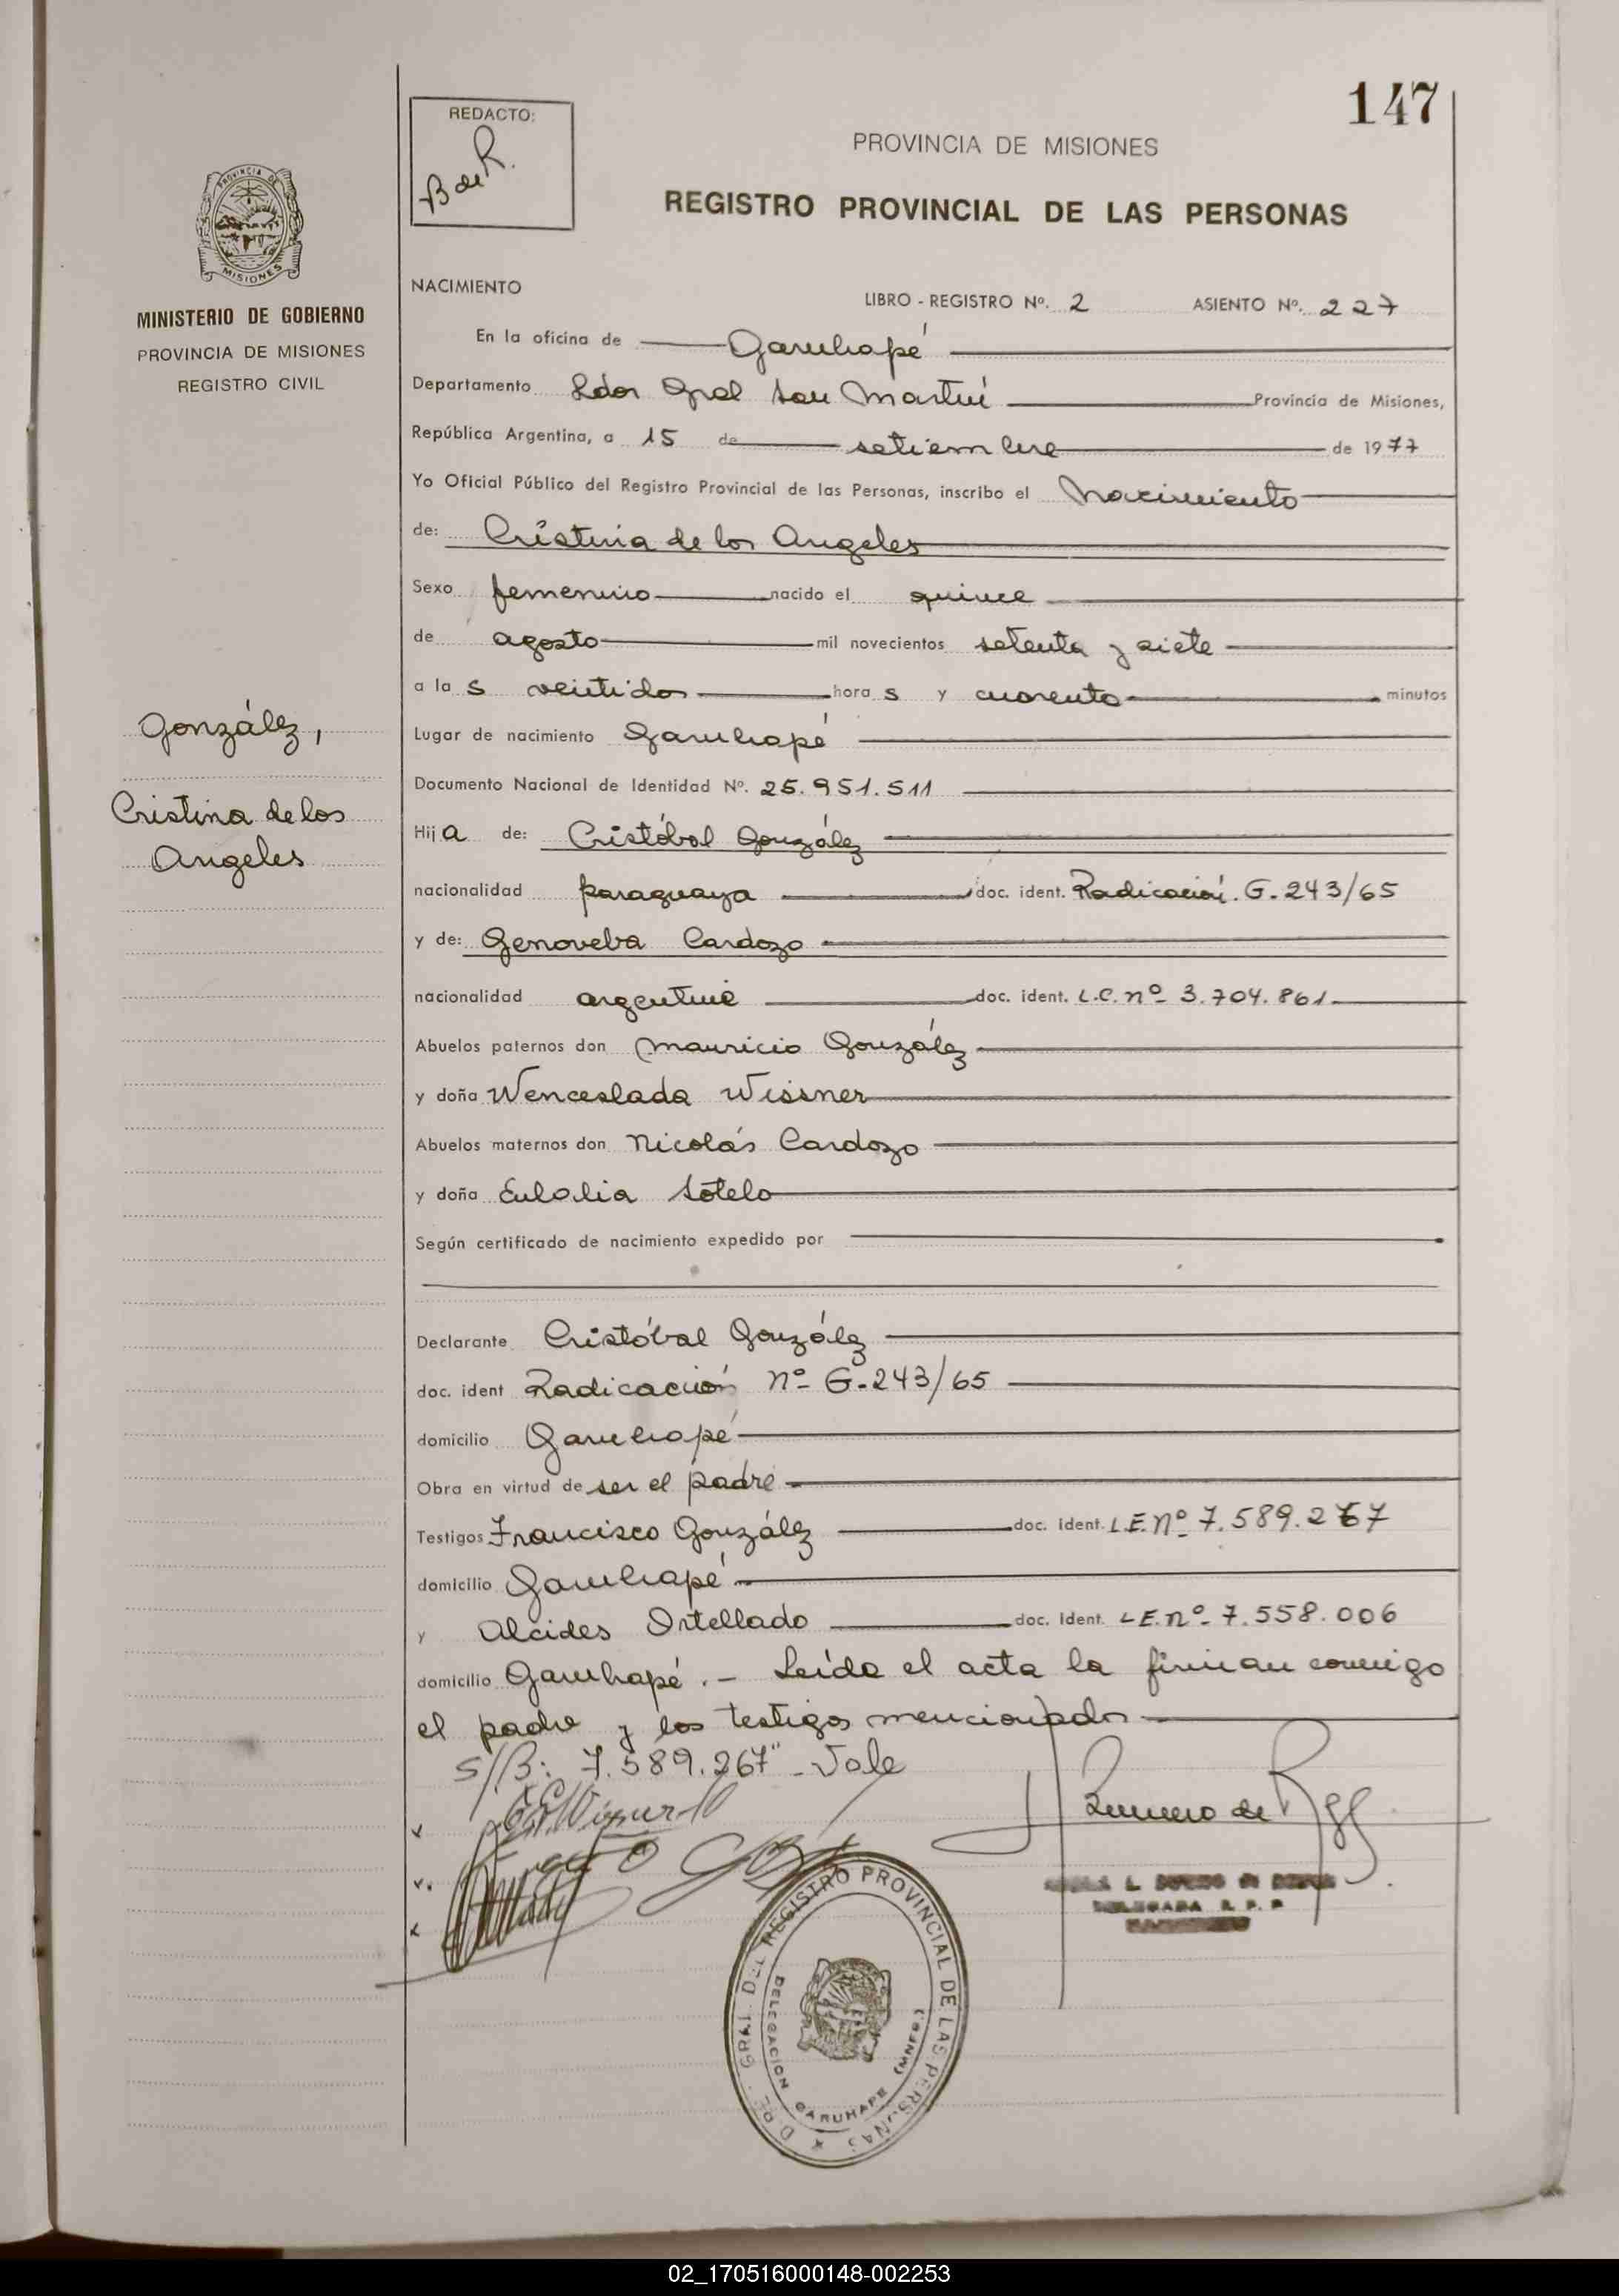 147
REDACTO:
B de R.
PROVINCIA DE MISIONES
REGISTRO PROVINCIAL DE LAS PERSONAS
PROVINCIA DE
MISIONES
MINISTERIO DE GOBIERNO
PROVINCIA DE MISIONES
REGISTRO CIVIL
González,
Cristina de los
Angeles
NACIMIENTO LIBRO - REGISTRO Nº. 2 ASIENTO Nº. 227
En la oficina de Garuhapé
Departamento Ldor Gral San Martín Provincia de Misiones,
República Argentina, a 15 de setiembre de 1977
Yo Oficial Público del Registro Provincial de las Personas, inscribo el Nacimiento
de: Cristina de los Angeles
Sexo femenino nacido el quince
de agosto mil novecientos setenta y siete
a la s veintidos hora s y cuarenta minutos
Lugar de nacimiento Garuhapé
Documento Nacional de Identidad Nº. 25.951.511
Hij a de: Cristóbal González
nacionalidad paraguaya doc. ident. Radicación. G-243/65
y de: Genoveba Cardozo
nacionalidad argentina doc. ident. L.C. nº 3.704.861
Abuelos paternos don Mauricio González
y doña Wenceslada Wissner
Abuelos maternos don Nicolás Cardozo
y doña Eulalia Sotelo
Según certificado de nacimiento expedido por
Declarante Cristóbal González
doc. ident Radicación nº G-243/65
domicilio Garuhapé
Obra en virtud de ser el padre
Testigos Francisco González doc. ident. L.E. nº 7.589.267
domicilio Garuhapé
y Alcides Ortellado doc. Ident. L.E. nº 7.558.006
domicilio Garuhapé. - Leída el acta la firman conmigo
el padre y los testigos mencionados
S/B: 7.589.267" - Vale
DELEGADA R. P. P
DEL REGISTRO PROVINCIAL DE LAS PERSONAS
DELEGACION GARUHAPE (MNES.)
02_170516000148-002253